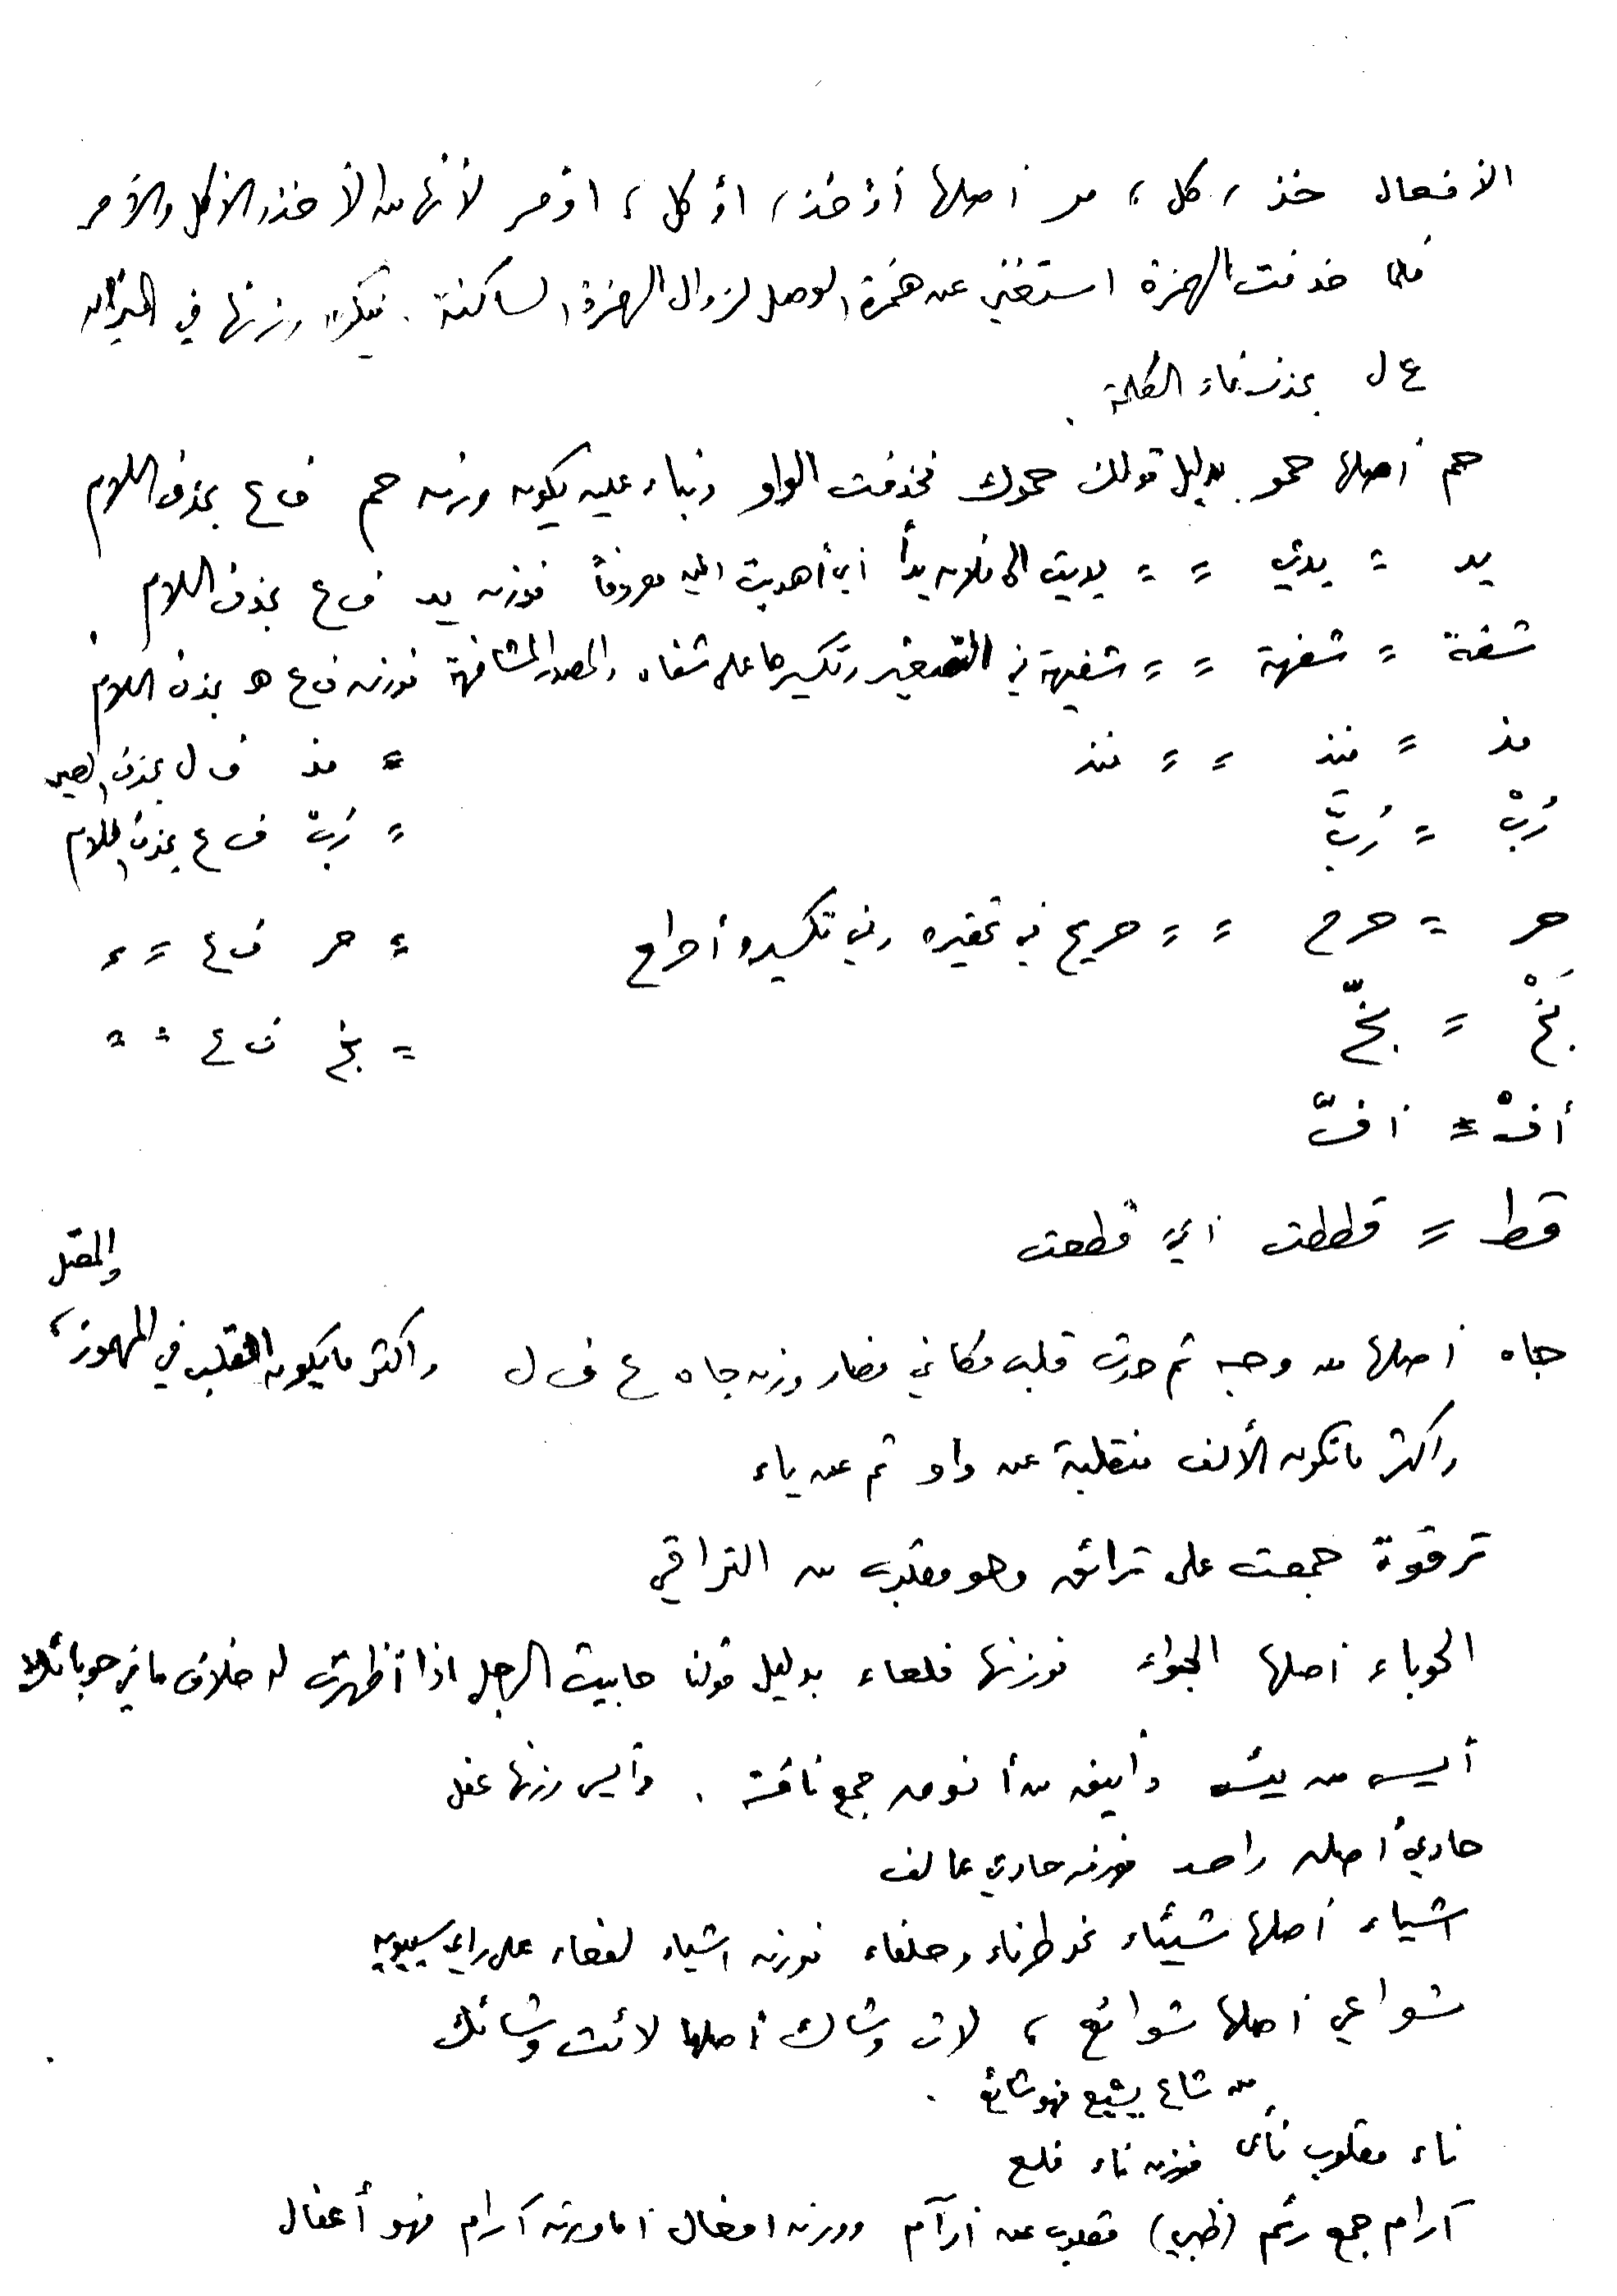 الأفعال خذ ، كل ، مر أصلها أؤخذ ، اؤكل ، اؤمر لأنها من الأخذ والأكل والأمر
فلما حذفت الهمزة استغني عن همزة الوصل لزوال الهمزة الساكنة . فيكون وزنها في الميزان
ع ل بحذف فاء الكلمة .
حم أصلها حمو بدليل قولك حموك فحذفت الواو وبناء عليه يكون وزن حم ف ع بحذف اللام
يد = يدي = = يديت الى فلان يداً أي أهديت اليه معروفاً فوزن يد ف ع بحذف اللام .
شفة = شفهة = = شفيهة في التصغير وتكسيرها على شفاه والمصدر المشافهة فوزن ف ع ه بحذف اللام
مذ = منذ = = منذ = مذ ف ل بحذف العين
رُبْ = رُبّ = رُبْ ف ع بحذف اللام
حر = حرح = = حريح في تحقيره وفي تكسيره أحراح = حر ف ع = =
بَخْ = بخّ = بخ ف ع = =
أفْ = أفّ
قط = قططت أي قطعت
جاه أصلها من وجه ثم حدث قلب مكاني فصار وزن جاه ع ف ل وأكثر ما يكون القلب في المهموز ، والمعتل
وأكثر ما تكون الألف منقلبة عن واو ثم عن ياء
ترقوة جمعت على ترائق وهو مقلوب من التراقي
الحوباء أصلها الحبواء فوزنها فلعاء بدليل قولنا حابيت الرجل اذا أظهرت له خلاف ما في حوبائك
أيس من يئس وأينق من أنوق جمع ناقة . وأيس وزنها عفل
حادي أصله واحد فوزن حادي عالف
اشياء أصلها شيئاء نحو طرفاء وحلفاء فوزن اشياء لفعاء على راي سيبويه
شواعي أصلها شوائع ، لاث وشاك أصلها لائث وشائك
من شاع يشيع فهو شائع .
ناء مقلوب نأى فوزن ناء فلع
آرام جمع رئم (ظبي) مقلوب عن أرآم ووزنه افعال أما وزن آرام فهو أعفال